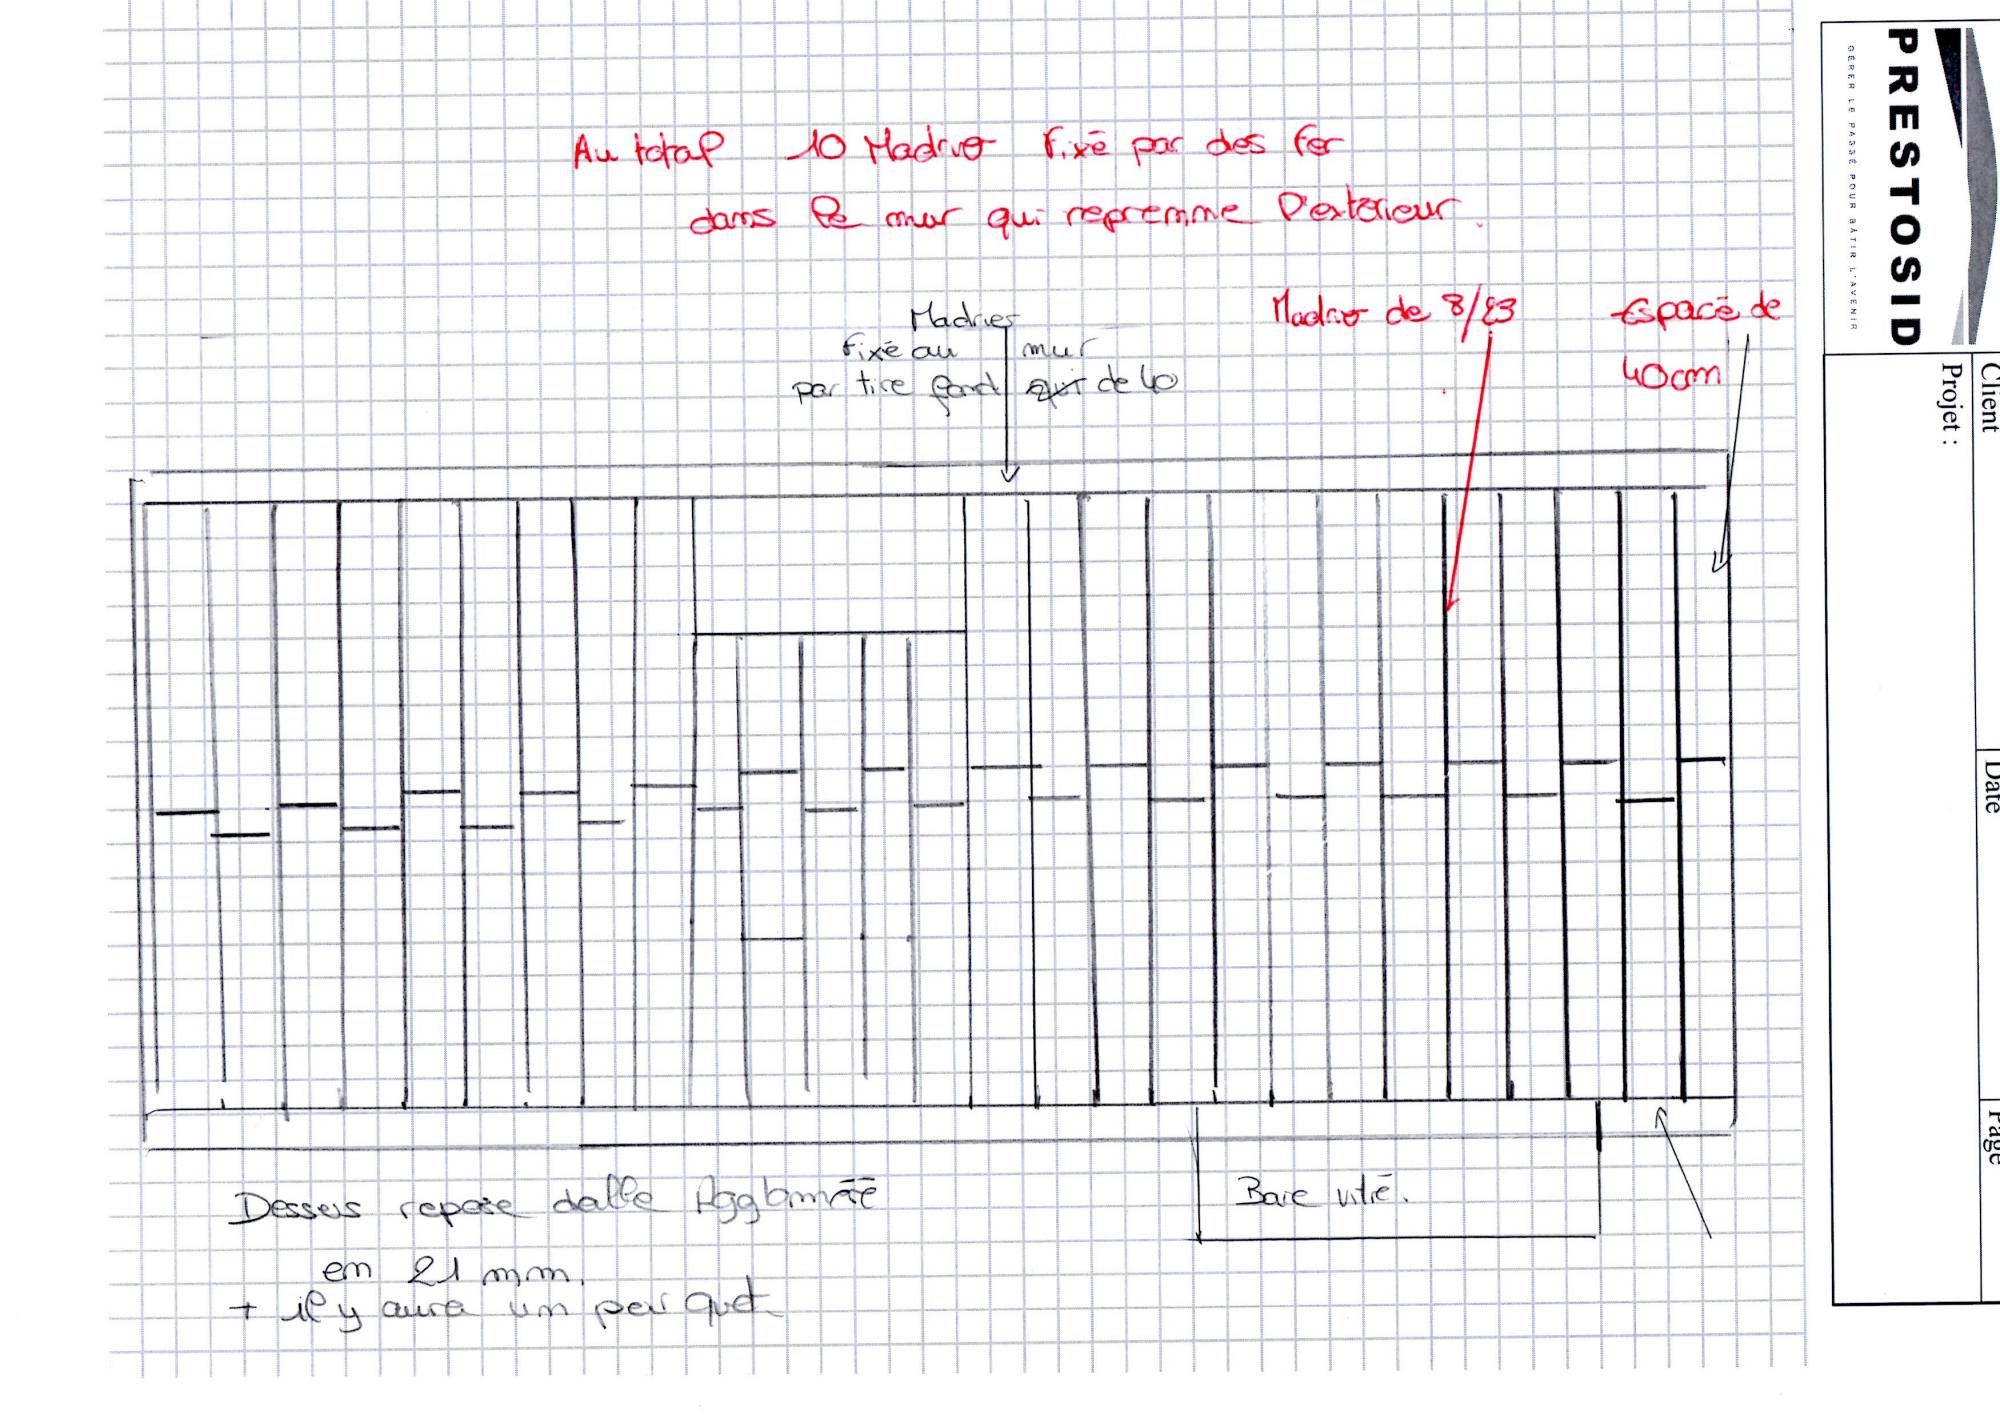 Au total 10 Madrier fixé par des fer
dans le mur qui reprenne l'exterieur.
Madrier
fixé au mur
par tire fond qui de 40
Madrier de 8/23
Espacé de
40cm
Baie vitré.
Dessus repose dalle Agglomété
en 21 mm.
+ il y aura un par quet
PRESTOSID
GÉRER LE PASSÉ POUR BÂTIR L'AVENIR
Client
Projet :
Date
Page